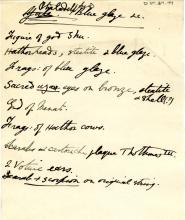 blue glaze &c.
Figure of god Shu.
Hathor heads, steatite & blue glaze.
Frags: of blue glaze.
Sacred eyes on bronze, steatite
& shell (?)
End of Menat.
Frag: of Hathor cows.
Scarabs & cartouch, plaque Thothmes III
2 Votive ears.
& scorpion on original string.